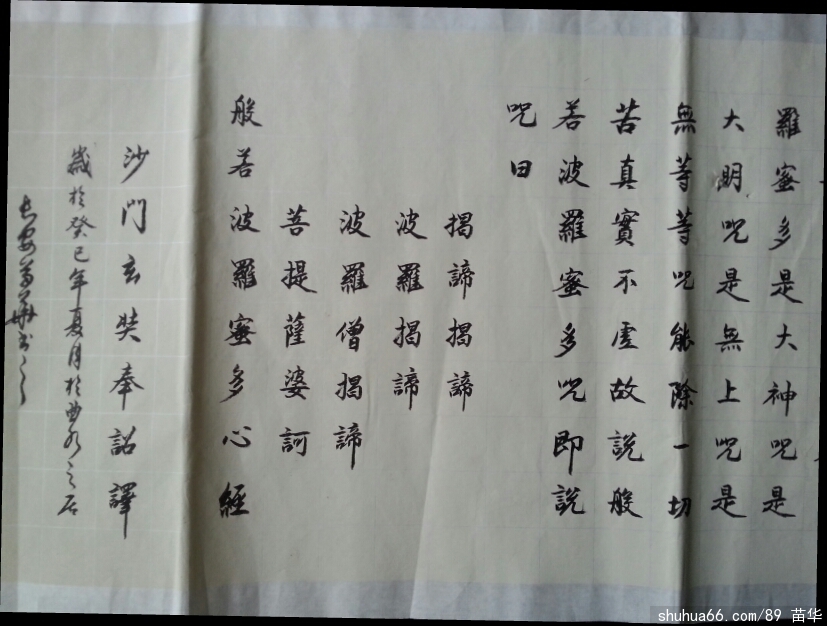 羅蜜多是大神咒是
大明咒是無上咒是
無等等咒能除一切
苦真實不虛故說般
若波羅蜜多咒即說
咒曰
揭諦揭諦
波羅揭諦
波羅僧揭諦
菩提薩婆訶
般若波羅蜜多心經
沙門玄奘奉詔譯
歲於癸巳年夏月於曲水之居
長安苗華書之
shuhua66.com/89 苗华